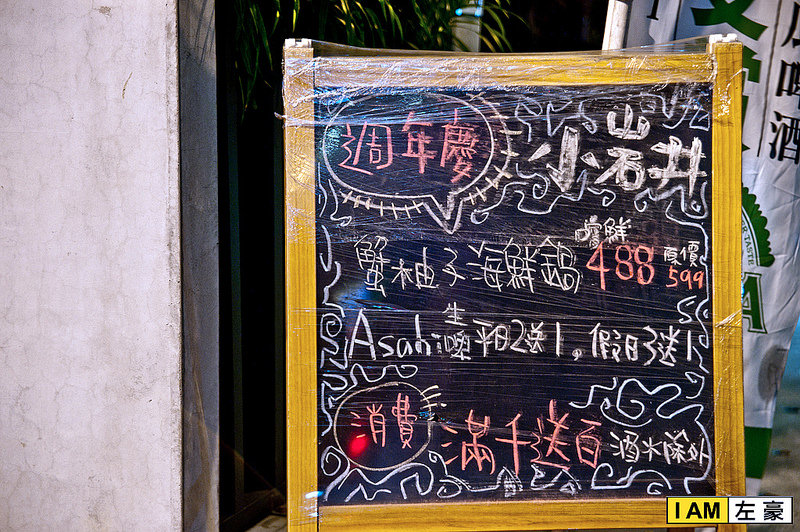 週年慶
小岩井
蟹柚子海鮮鍋 嚐鮮 488 原價 599
Asahi生啤平日2送1, 假日3送1
消費
滿千送百 酒水除外
啤酒
TASTE
I AM 左豪